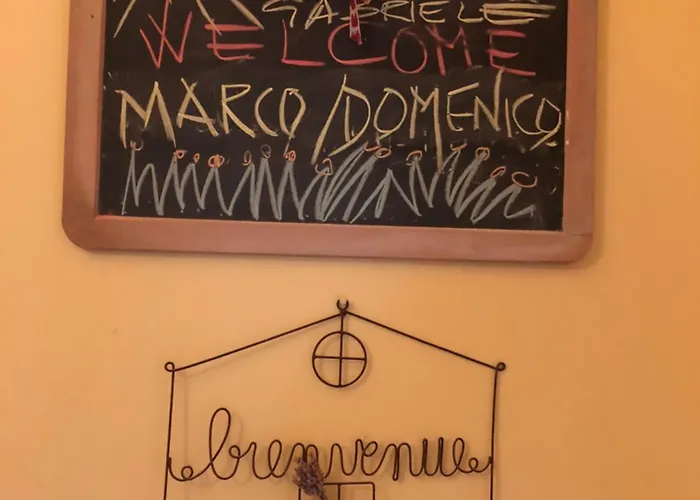 GABRIELE
WELCOME
MARCO/DOMENICO
bienvenue